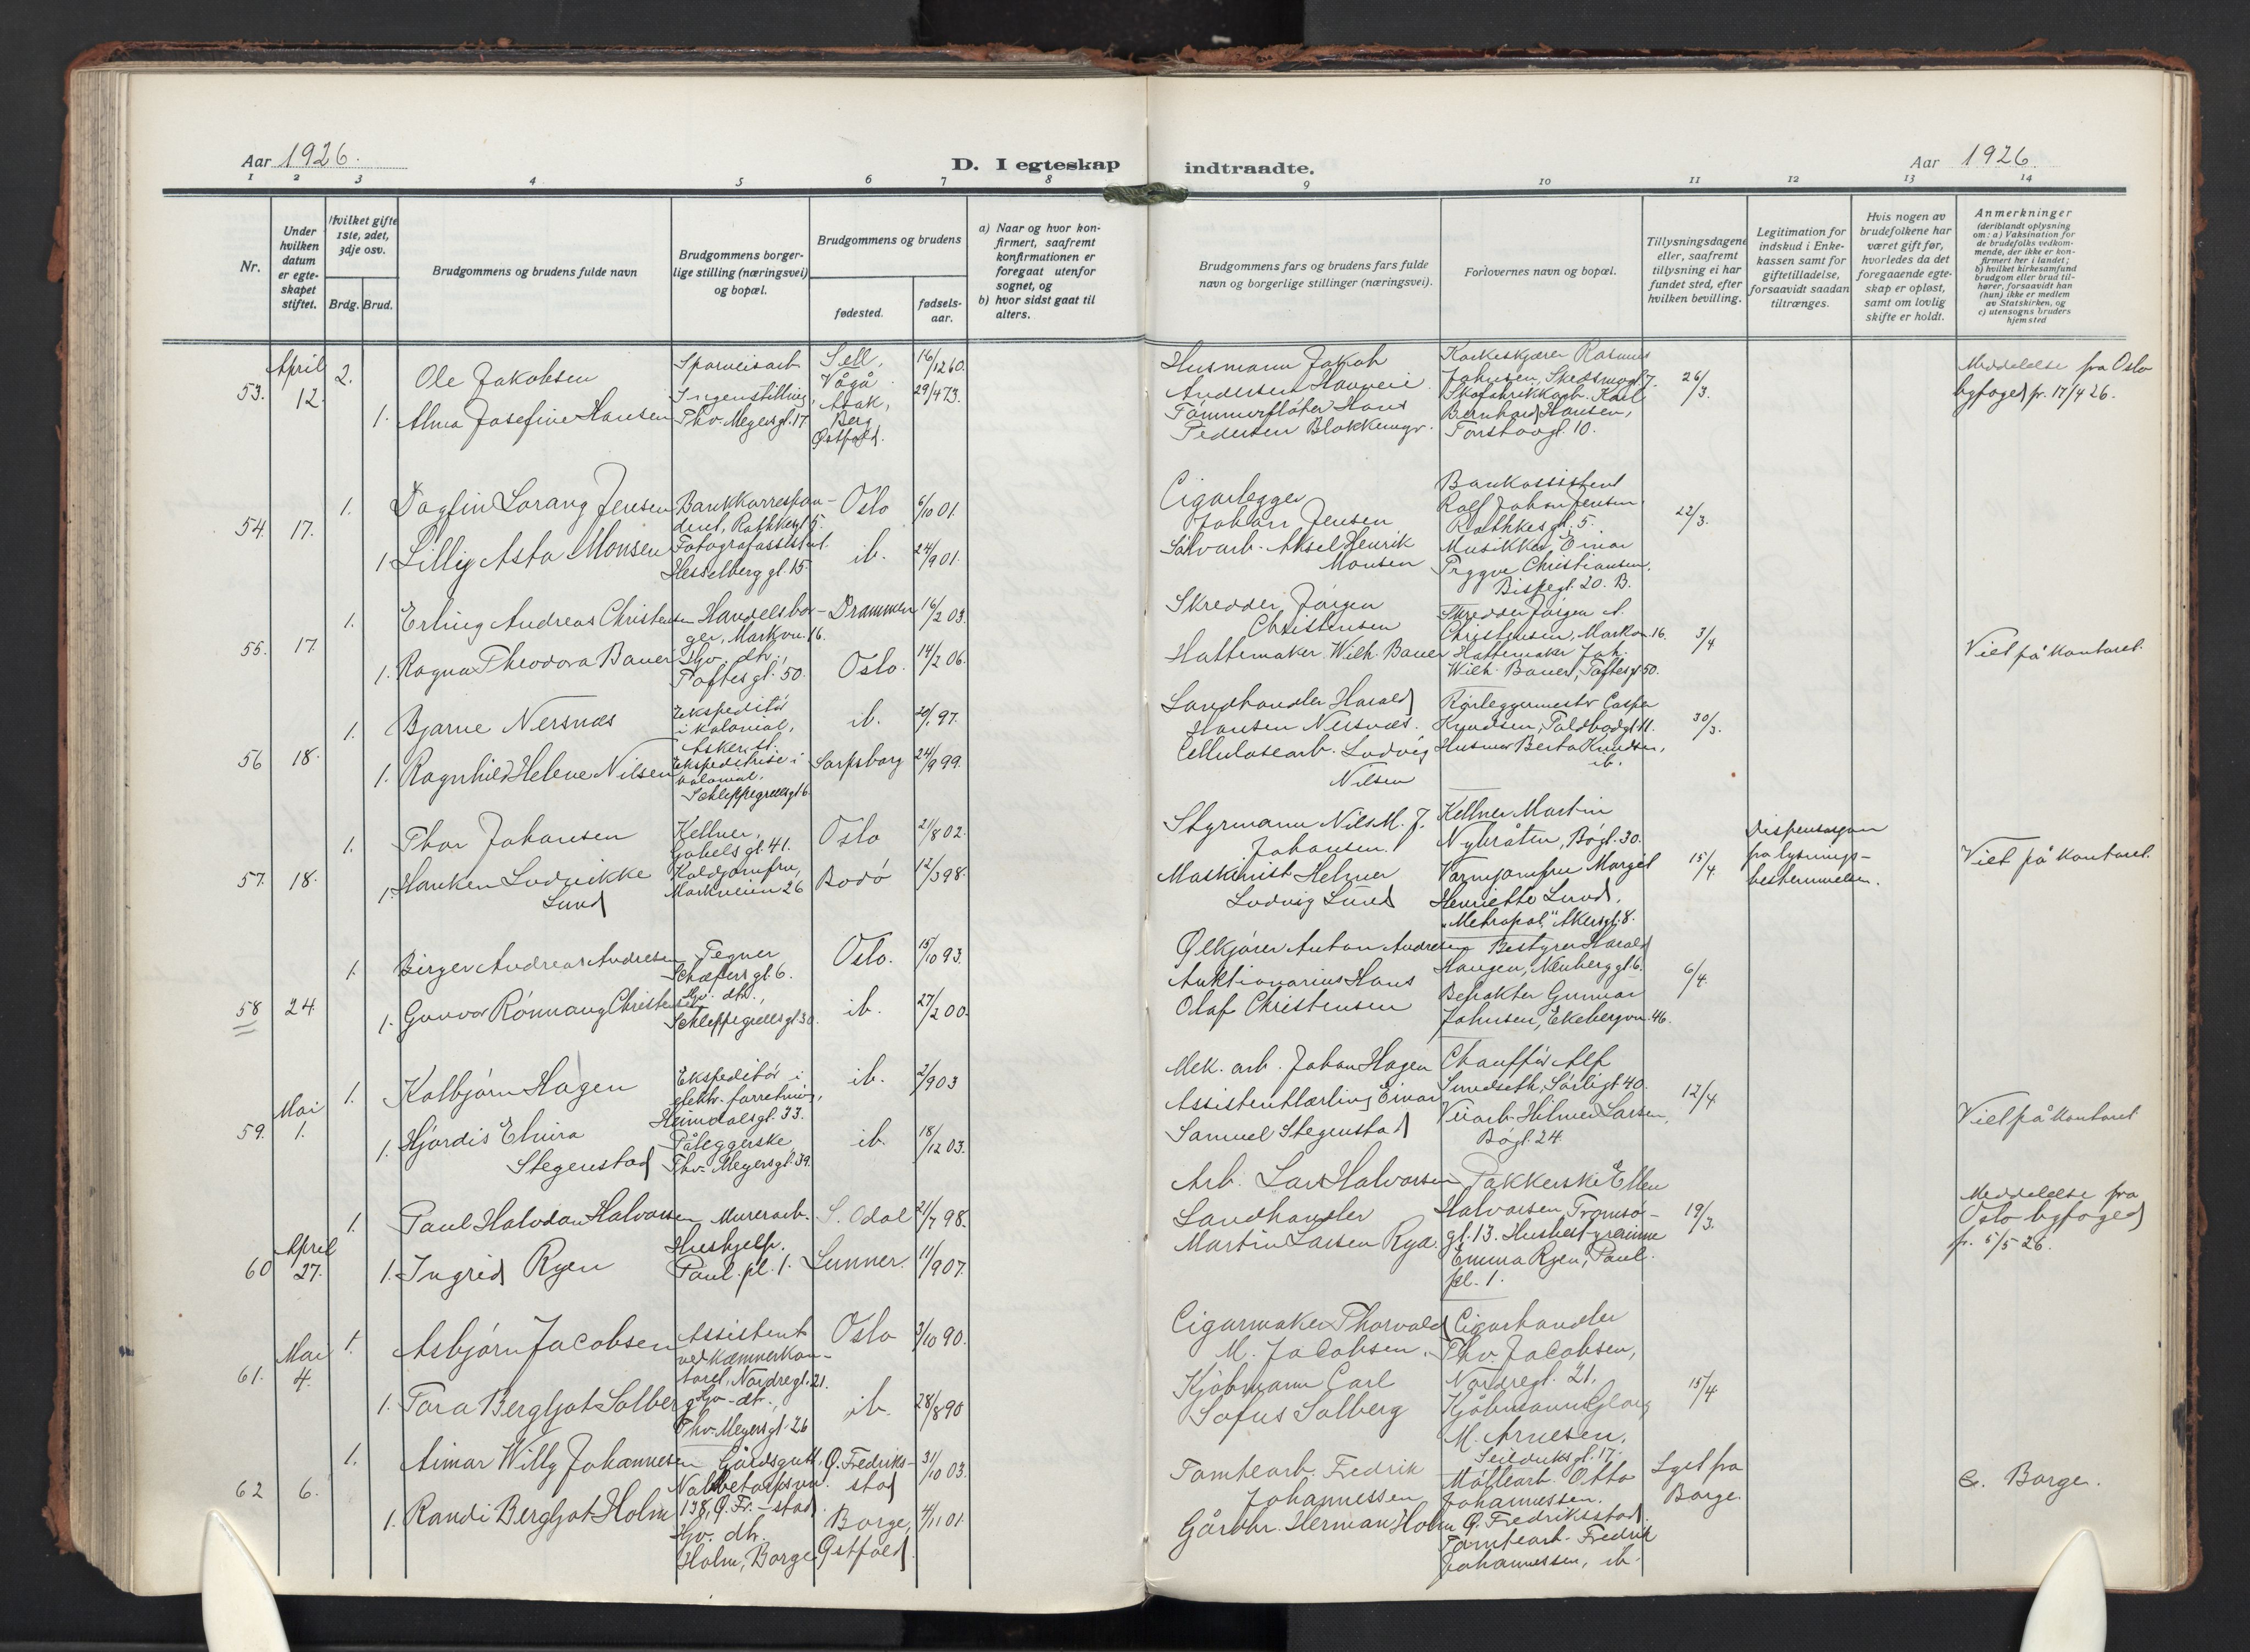 Aar 1926.
D. I egteskap
indtraadte.
Aar 1926
1 2 3 4 5 6 7 8
9 10 11 12 13 14
Nr.
Under hvilken datum er egteskapet stiftet.
Hvilket gifte 1ste, 2det, 3dje osv.
Brdg. Brud.
Brudgommens og brudens fulde navn
Brudgommens borgerlige stilling (næringsvei) og bopæl.
Brudgommens og brudens
fødested.
fødselsaar.
a) Naar og hvor konfirmert, saafremt konfirmationen er foregaat utenfor sognet, og
b) hvor sidst gaat til alters.
Brudgommens fars og brudens fars fulde navn og borgerlige stillinger (næringsvei).
Forlovernes navn og bopæl.
Tillysningsdagene eller, saafremt tillysning ei har fundet sted, efter hvilken bevilling.
Legitimation for indskud i Enkekassen samt for giftetilladelse, forsaavidt saadan tiltrænges.
Hvis nogen av brudefolkene har været gift før, hvorledes da det foregaaende egteskap er opløst, samt om lovlig skifte er holdt.
Anmerkninger (deriblandt oplysning om: a) Vaksination for de brudefolks vedkommende, der ikke er konfirmert her i landet; b) hvilket kirkesamfund brudgom eller brud tilhører, forsaavidt han (hun) ikke er medlem av Statskirken, og c) utensogns bruders hjemsted
53. April 12. 2. Ole Jakobsen Sporveisarb Sell, Vågå. 16/12 60.
1. Alma Josefine Hansen Ingen stilling, Thv. Meyersgt. 17 Asak, Berg Østfold. 29/4 73.
Husmann Jakob Andersen
Tømmerfløter Hans Pedersen
Rasmus Johnsen, Skedsmogt. 7.
Skofabrikkarb. Karl Bernhard Hansen, 10.
26/3.
Meddelelse fra Oslo byfoged pr. 17/4 26.
54. 17. 1. Dagfin Lorang Jensen Bankkorrespondent, Rathkesgt 5. Oslo 6/10 01.
1 Lilly Asta Monsen Fotografassistent. Hesselberggt. 15 ib. 24/9 01.
Cigarlegger Johan Jensen
Sølvarb. Aksel Henrik Monsen
Bankassistent Rolf Johan Jensen Rathkesgt. 5.
Musikker Einar Trygve Christiansen, Bispegt. 20. B.
22/3.
55. 17. 1. Erling Andreas Christensen Handelsborger, Markvn. 16. Drammen 16/2 03.
1. Ragna Theodora Bauer Hjv. dtr., Toftesgt. 50. Oslo. 14/2 06.
Skredder Jørgen Christensen
Hattemaker Wilh. Bauer
Skredder Jørgen A. Christensen, Markvn. 16.
Hattemaker Joh. Wilh. Bauer, Toftesgt 50.
3/4
Viet på kontoret.
56 18. 1. Bjarne Nersnæs Ekspeditør i kolonial, Askerst. ib. 20/1 97.
1. Ragnhild Helene Nilsen Ekspeditrise i kolonial. Schleppegrellsgt. 6 Sarpsborg 24/9 99.
Landhandler Harald Hansen Nersnæs.
Cellulosearb. Ludvig Nilsen
Rørleggermester Casper Knudsen, Toldbodgt 11.
Husmor Berta Knudsen, ib.
30/3.
57. 18. 1. Thor Johansen Kellner, Gabelsgt. 41. Oslo 21/8 02.
1. Hanken Ludvikke Lund Koldjomfru, Markveien 26 Bodø 12/3 98.
Styrmann Nils M. J. Johansen.
Maskinist Helmer Ludvig Lund
Kellner Martin Nybråten, Bøgt. 30.
Varmjomfru Margot Henriette Lund, "Metropol," Akersgt. 8.
15/4
Dispensasjon fra lysningsbestemmelsen.
Viet på kontoret.
58 24. 1. Birger Andreas Andresen Tegner Schæfersgt. 6. Oslo. 15/10 93.
1. Gunvor Rønnaug Christensen Hjv. dtr., Schleppegrellsgt 30. ib. 27/2 00.
Ølkjører Anton Andresen
Auktionarius Hans Olaf Christensen
Bestyrer Harald Haugen, Neuberggt. 6.
Befrakter Gunnar Johnsen, Ekebergvn. 46.
6/4.
59. Mai 1. 1. Kolbjørn Hagen Ekspeditør i elektr. forretning, Heimdalsgt. 33. ib. 2/9 03
1. Hjørdis Elvira Stegenstad Påleggerske Thv. Meyersgt. 39. ib. 18/12 03.
Mek. arb. Johan Hagen
Einar Samuel Stegenstad
Chauffør Alf Sundseth, Sørligt 40.
Veiarb. Hilmer Larsen, Bøgt. 24.
12/4
Viet på kontoret
60 April 27. 1. Paul Halvdan Halvorsen Murerarb. S. Odal 21/7 98.
1. Ingrid Ryen Hushjelp. Paul. pl. 1. Lunner. 11/9 07.
Arb. Lars Halvorsen
Landhandler Martin Larsen Rya.
Pakkerske Ellen Halvorsen, Tromsøgt. 13. Husbestyrerinne Emma Ryen, Paul. pl. 1.
19/3.
Meddelelse fra Oslo byfoged pr. 5/5 26.
61. Mai 4. 1. Asbjørn Jacobsen Assistent ved kæmnerkontoret, Nordregt. 21. Oslo 3/10 90.
1. Tora Bergljot Solberg Hjv. dtr., Thv. Meyersgt. 26 ib. 28/8 90
Cigarmaker Thorvald M. Jacobsen.
Kjøbmann Carl Sofus Solberg
Cigarhandler Thv. Jacobsen, Nordregt. 21,
Kjøbmann Georg M. Arnesen, Seilduksgt. 17.
15/4
62 6. 1. Aimar Willy Johannesen Gårdsgutt, 138, Ø. Fr.-stad. Ø. Fredriksstad 31/10 03.
1. Randi Bergljot Holm Hjv. dtr. Holm, Borge Borge, Østfold. 4/11 01.
Tomtearb. Fredrik Johannessen
Gårdbr. Herman Holm
Møllearb. Otto Johannessen. Ø. Fredriksstad.
Tomtearb. Fredrik Johannessen, ib.
Lyst fra Borge.
c. Borge.